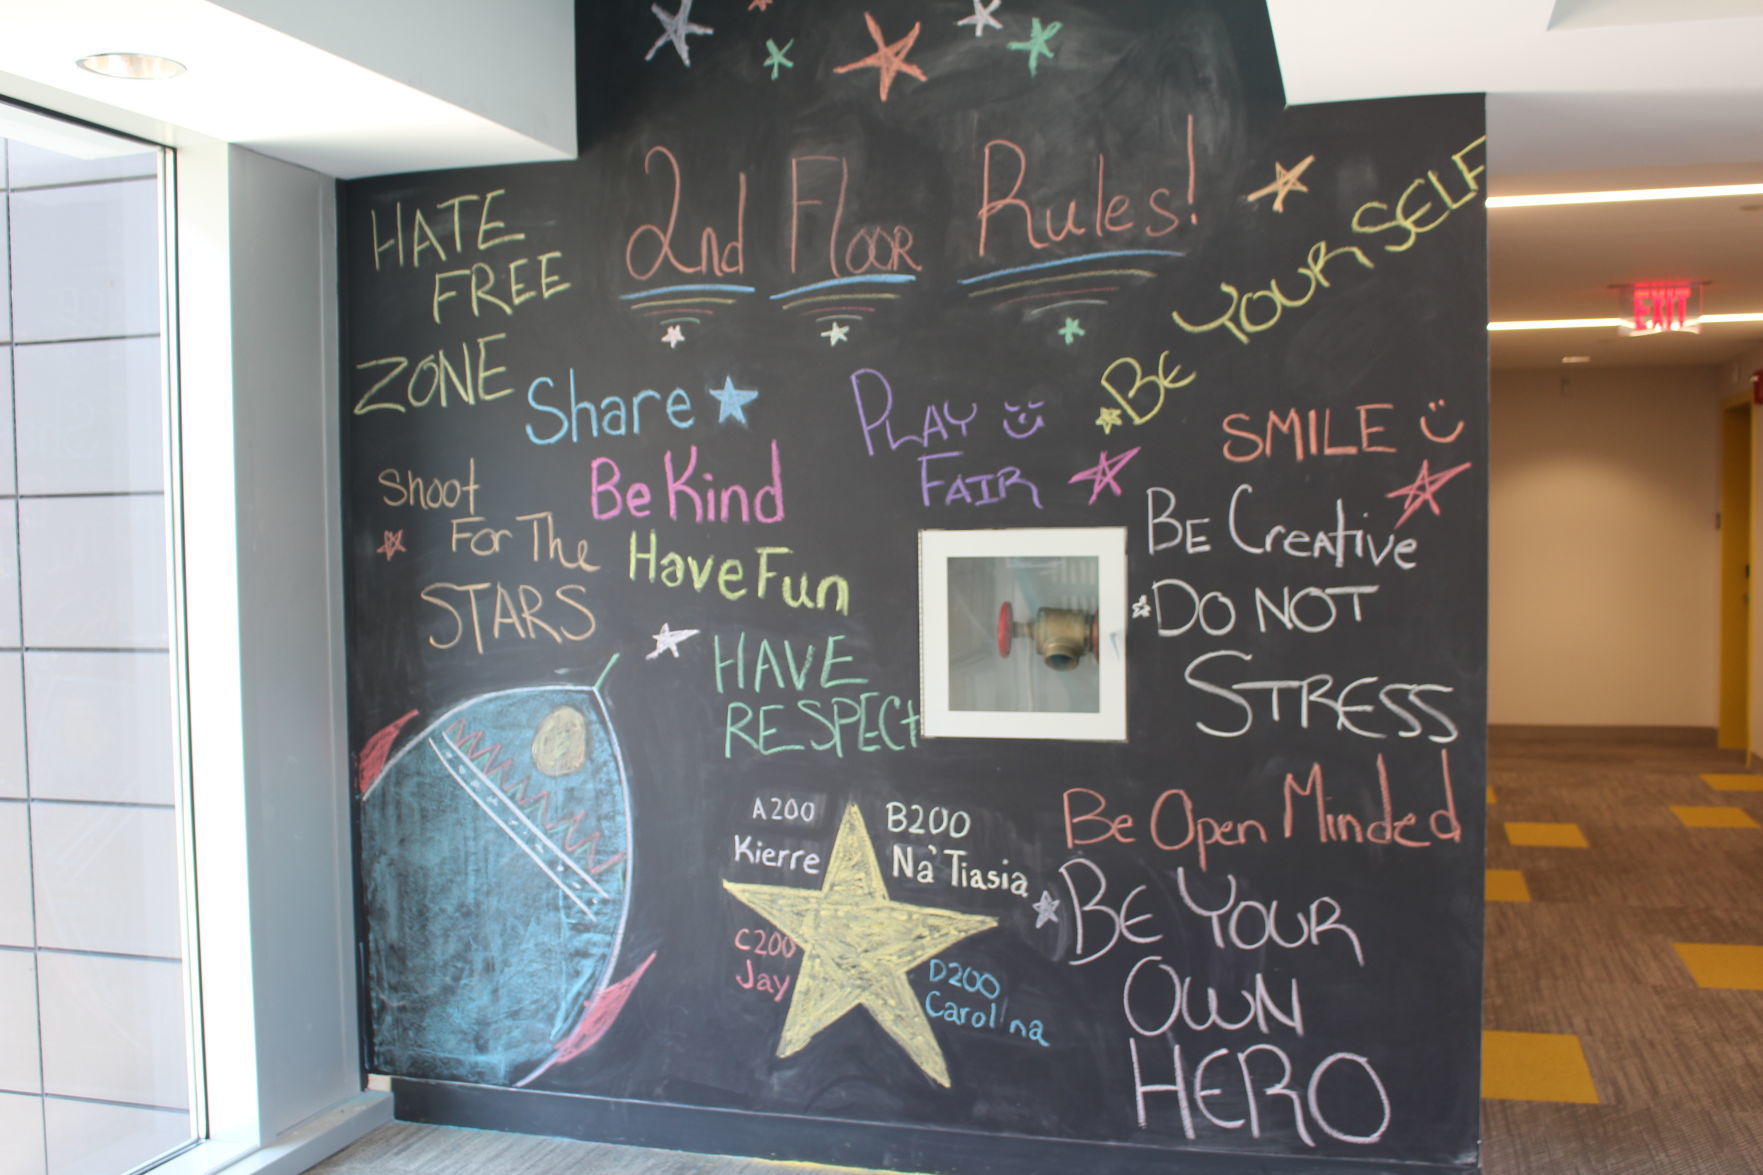 2nd Floor Rules!
HATE
FREE
ZONE
BE YOURSELF
Share
PLAY
FAIR
SMILE
Shoot
For The
STARS
Be Kind
Have Fun
BE Creative
DO NOT
STRESS
HAVE
RESPECt
A200
Kierre
B200
Na'Tiasia
C200
Jay
D200
Carolina
Be Open Minded
BE YOUR
OWN
HERO
EXIT